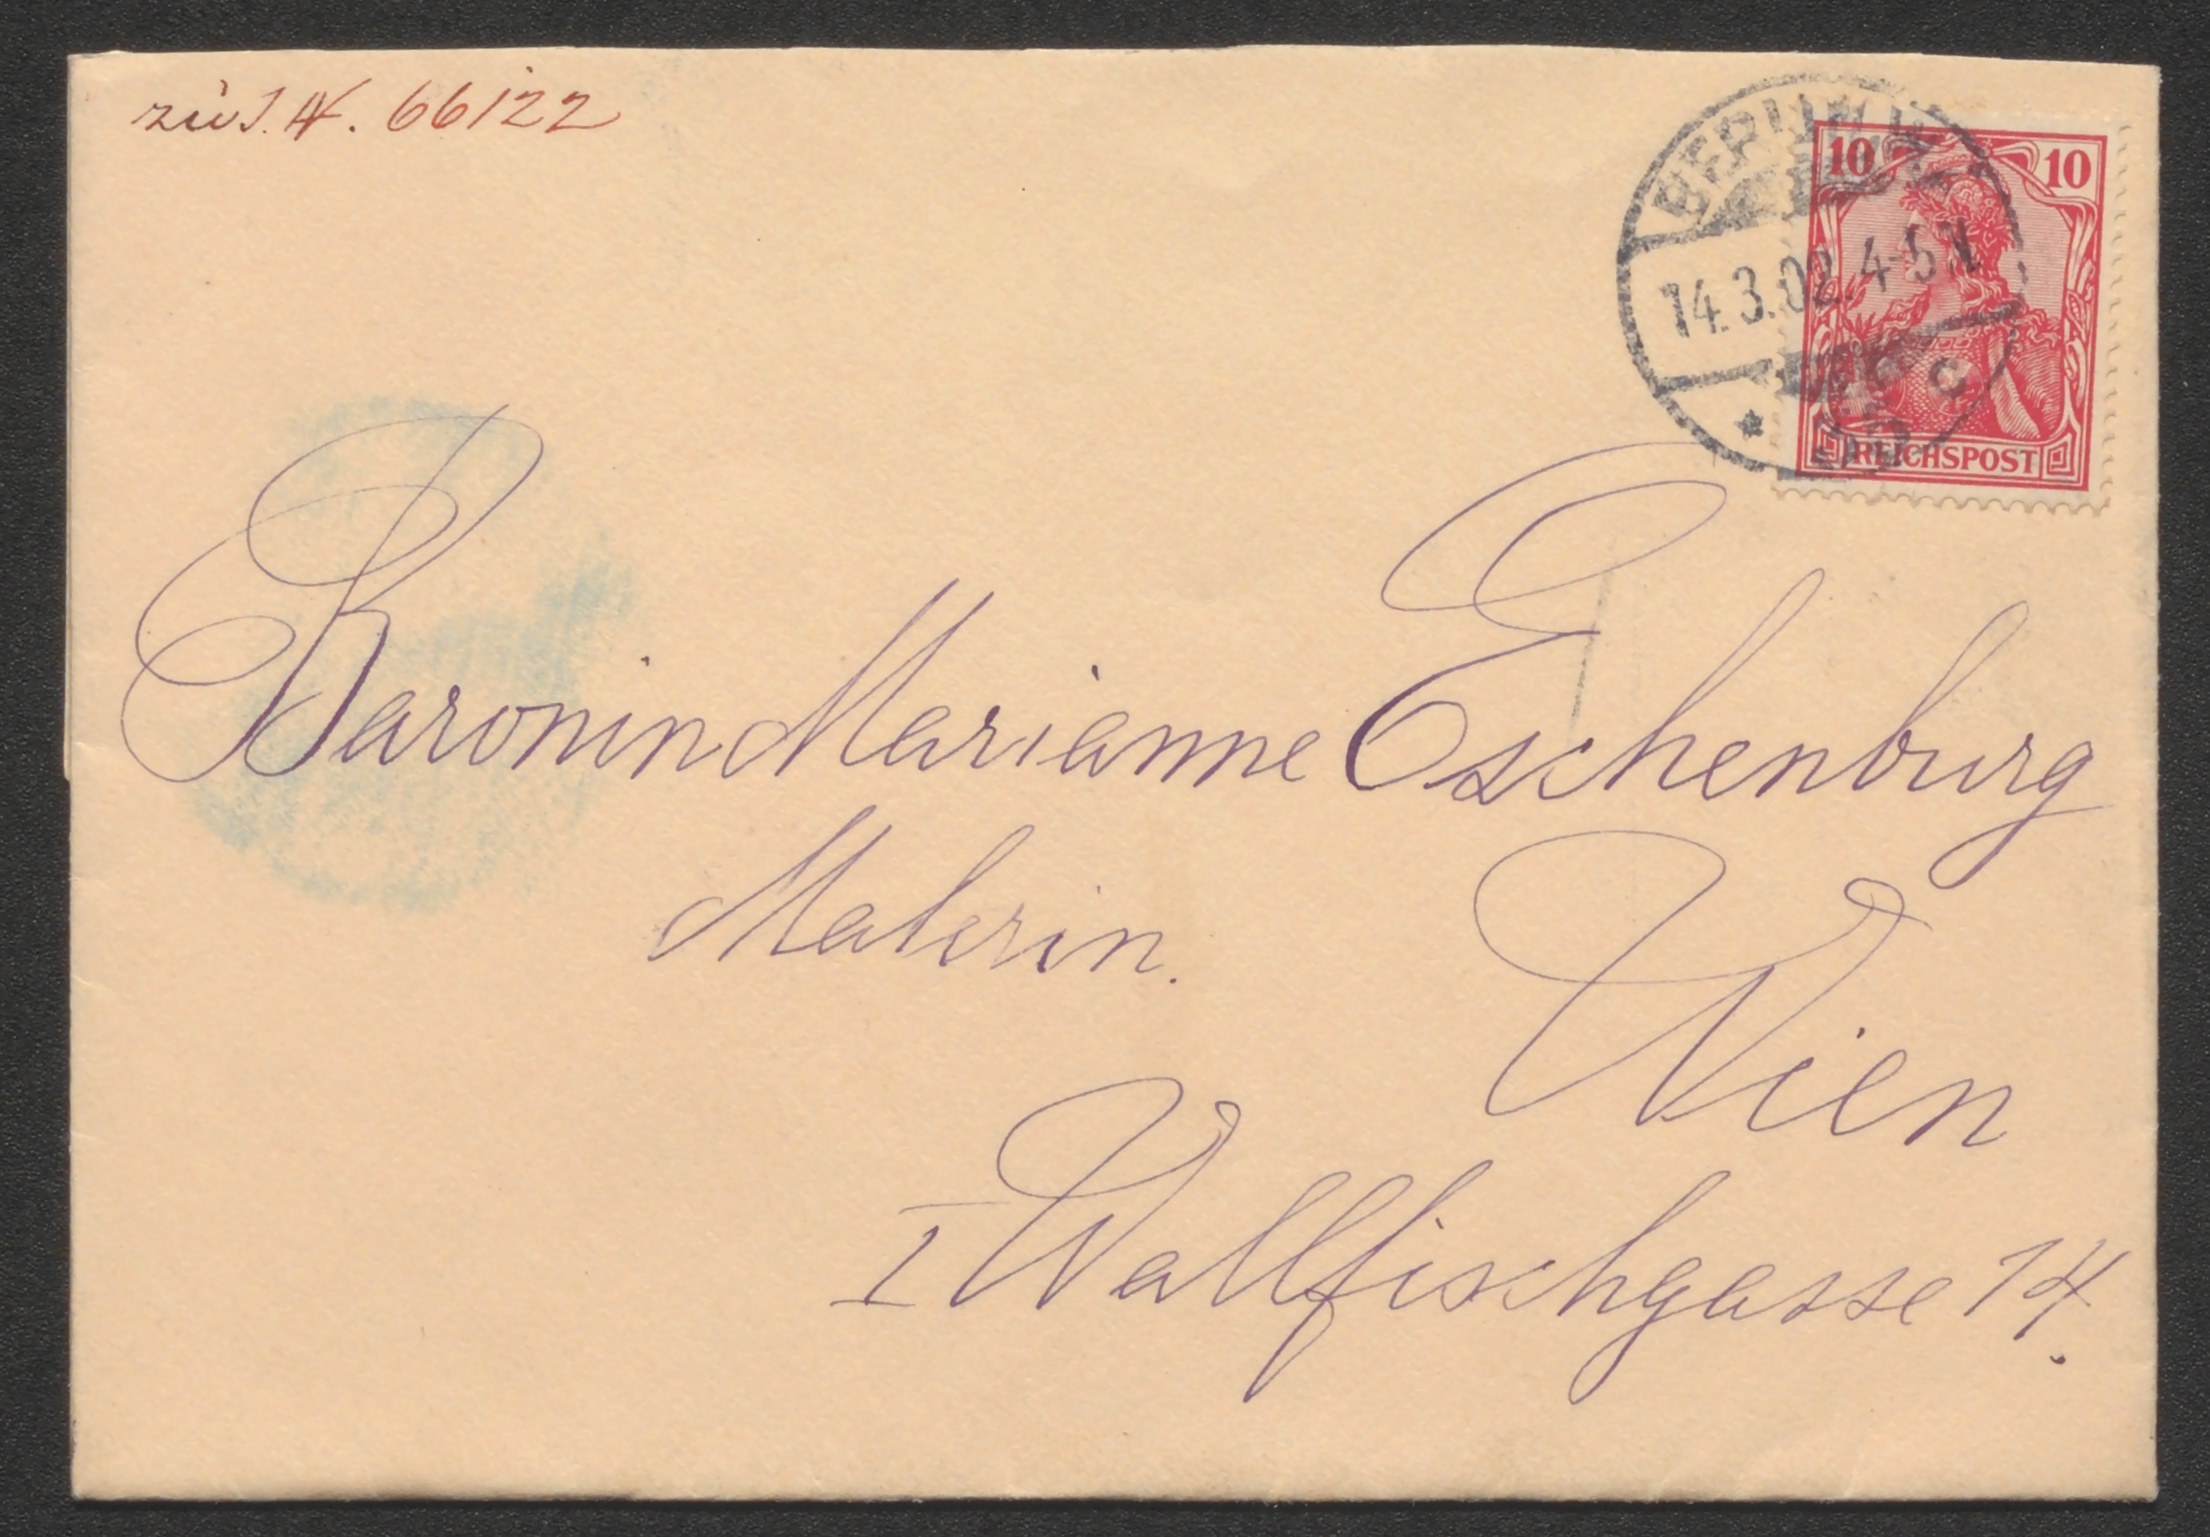 zu I. N. 66122
BERLIN W.
14.3.02. 4-5 N
* c
10 10
REICHSPOST
Baronin Marianne Eschenburg
Malerin.
Wien
I Wallfischgasse 14.